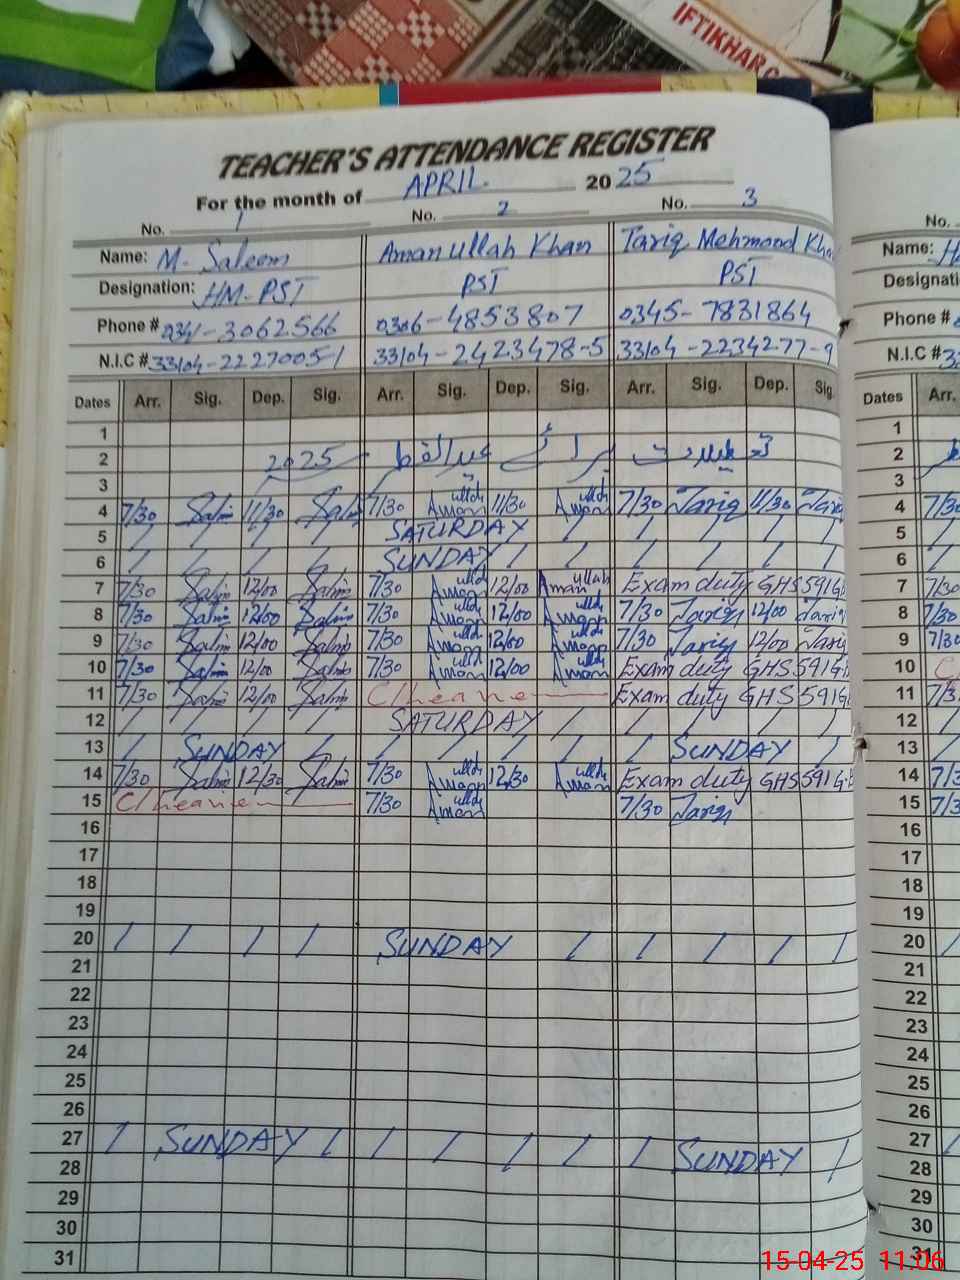 IFTIKHAR
TEACHER'S ATTENDANCE REGISTER
For the month of APRIL 2025
No. 1 No. 2 No. 3
Name: M. Saleem Aman ullah Khan Tariq Mehmood Name:
Designation: HM. PST PST PST
Phone # 0341-3062566 0306-4853807 0345-7831864 Phone #
N.I.C # 33104-2227005-1 33104-2423478-5 33104-2234277-9 N.I.C #
Dates Arr. Sig. Dep. Sig. Arr. Sig. Dep. Sig. Arr. Sig. Dep. Sig. Dates Arr.
1 1
2 تعطیلات برائے عید الفطر 2025 2
3 3
4 7/30 Salim 11/30 Salim 7/30 Aman ullah 11/30 Aman ullah 7/30 Tariq 11/30 Tariq 4 7/30
5 / / / / SATURDAY / / / / / / 5 /
6 / / / / SUNDAY / / / / / / 6 /
7 7/30 Salim 12/00 Salim 7/30 Aman ullah 12/00 Aman ullah Exam duty GHS 591 G 7 7/30
8 7/30 Salim 12/00 Salim 7/30 Aman ullah 12/00 Aman ullah 7/30 Tariq 12/00 Tariq 8 7/30
9 7/30 Salim 12/00 Salim 7/30 Aman ullah 12/00 Aman ullah 7/30 Tariq 12/00 Tariq 9 7/30
10 7/30 Salim 12/00 Salim 7/30 Aman ullah 12/00 Aman ullah Exam duty GHS 591 G 10 C
11 7/30 Salim 12/00 Salim C/leave Exam duty GHS 591 G 11
12 / / / / SATURDAY / / / / / 12 /
13 / SUNDAY / / / / / / / SUNDAY / 13 /
14 7/30 Salim 12/30 Salim 7/30 Aman ullah 12/30 Aman ullah Exam duty GHS 591 G 14
15 C/leave 7/30 Aman ullah 7/30 Tariq 15
16 16
17 17
18 18
19 19
20 / / / / SUNDAY / / / / / 20 /
21 21
22 22
23 23
24 24
25 25
26 26
27 / SUNDAY / / / / / / / SUNDAY / 27 /
28 28
29 29
30 30
31 31
15-04-25 11:06